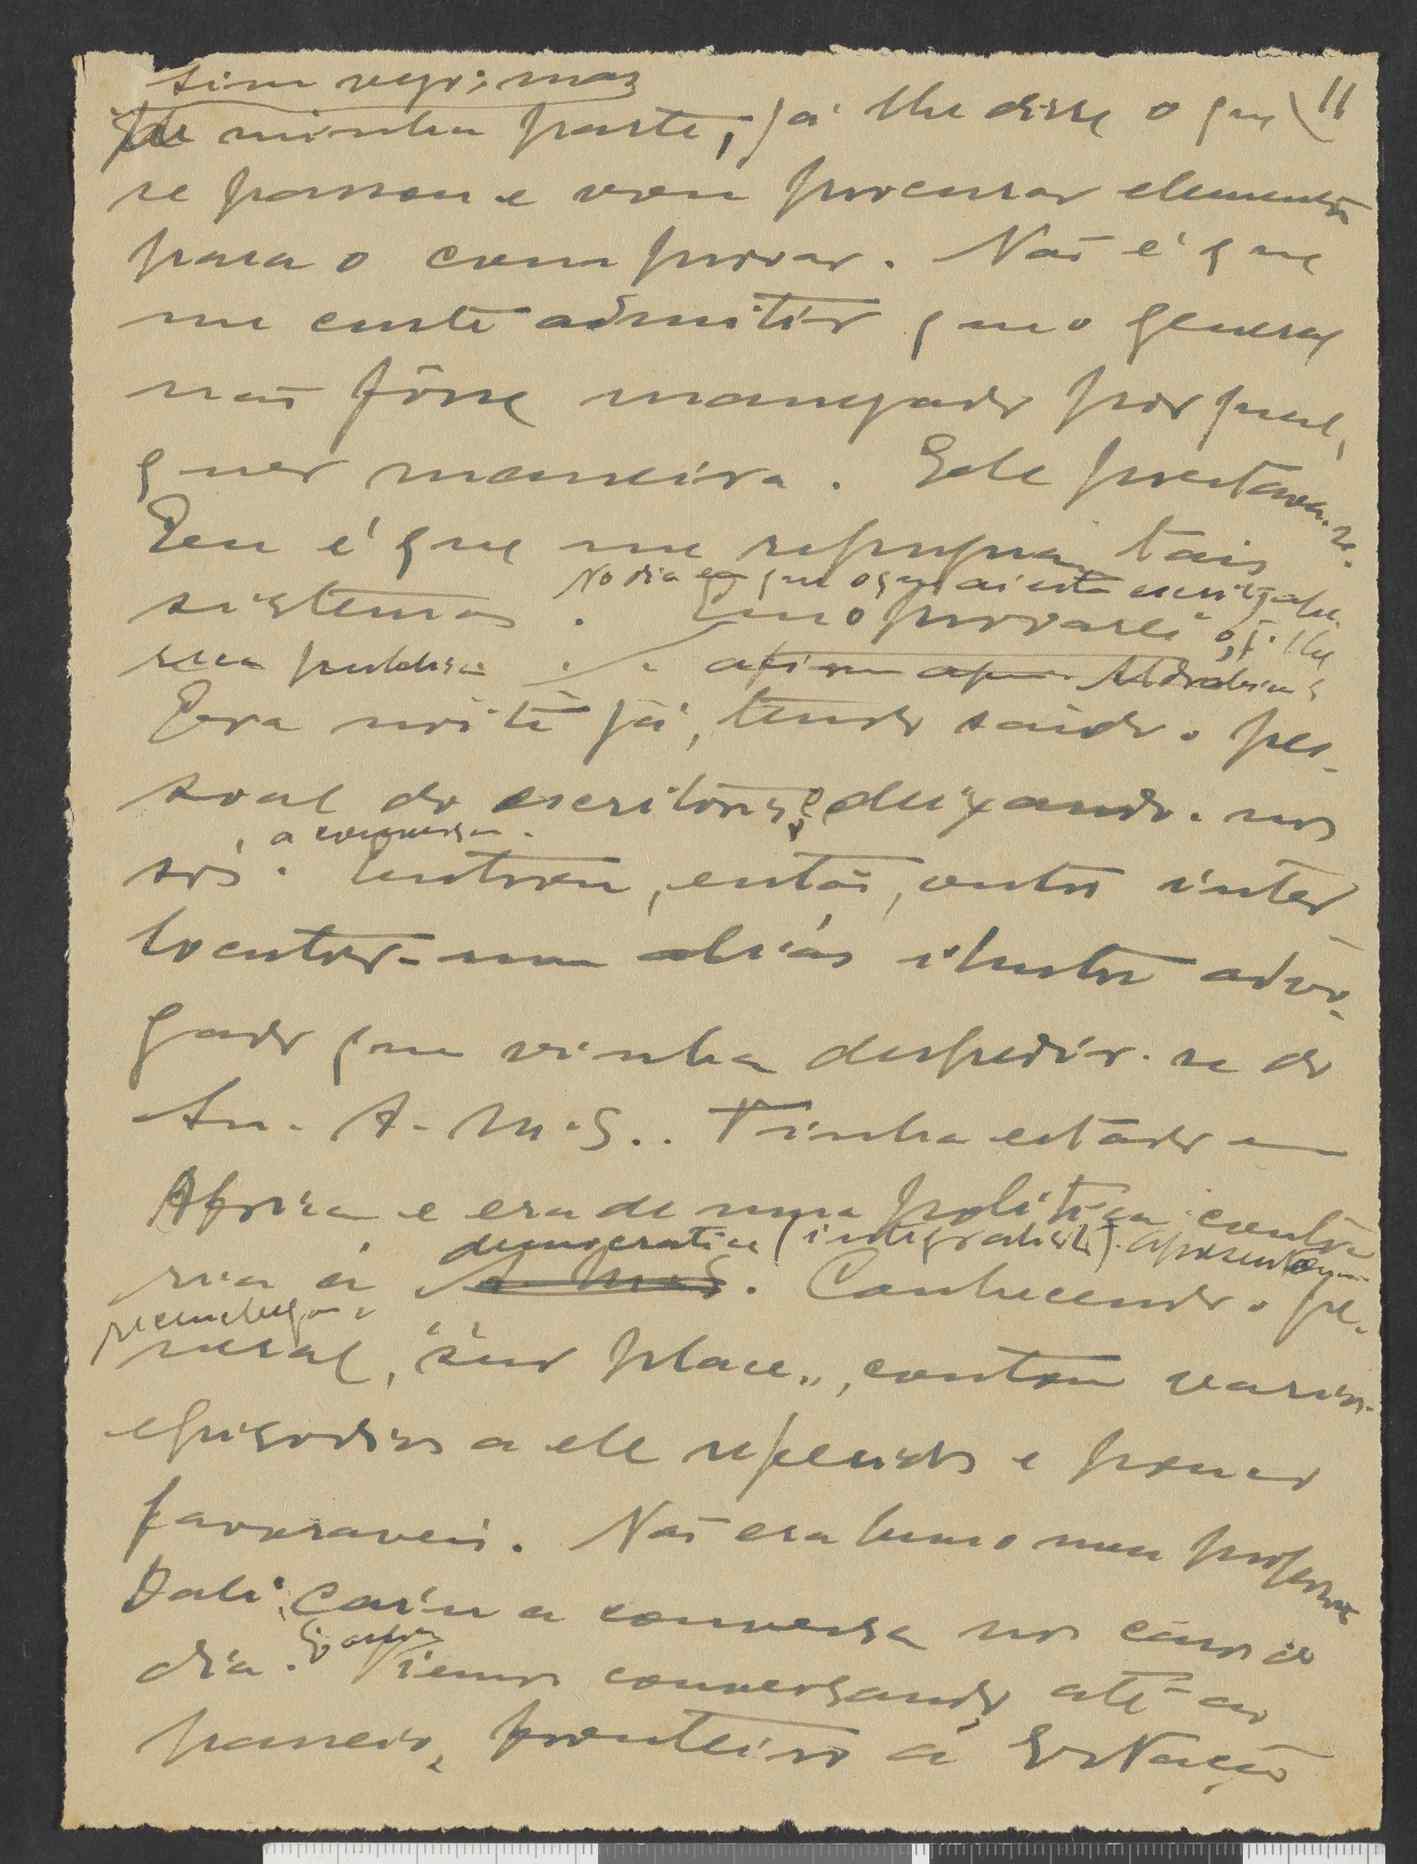 11
sim vejo; mas
De minha parte, já lhe disse o que
se passou e vou procurar elementos
para o comprovar. Não é que
me custe admitir que o general
não fôsse manejado por qual-
quer maneira. Ele prestava-se.
Eu é que me repugna tais
sistemas. No dia em que o
provarei
sua publica
Era noite já, tendo saido o pes-
soal do escritorio, e deixando-nos
sós. a conversa
Entrou, então, outro inter
locutor - um aliás ilustre advo-
gado que vinha despedir-se do
Sr. A. M. S.. Tinha estado em
Africa e era de uma politica contra
ria á A. M. S. democratica (integralista).
Conhecendo o ge-
neral, "sur place", contou varios
episodios a ele referidos e pouco
favoraveis. Não era lume
Dali, caíu a conversa nos casos do
dia. Viemos conversando até ao
passeio, fronteiro á Estação